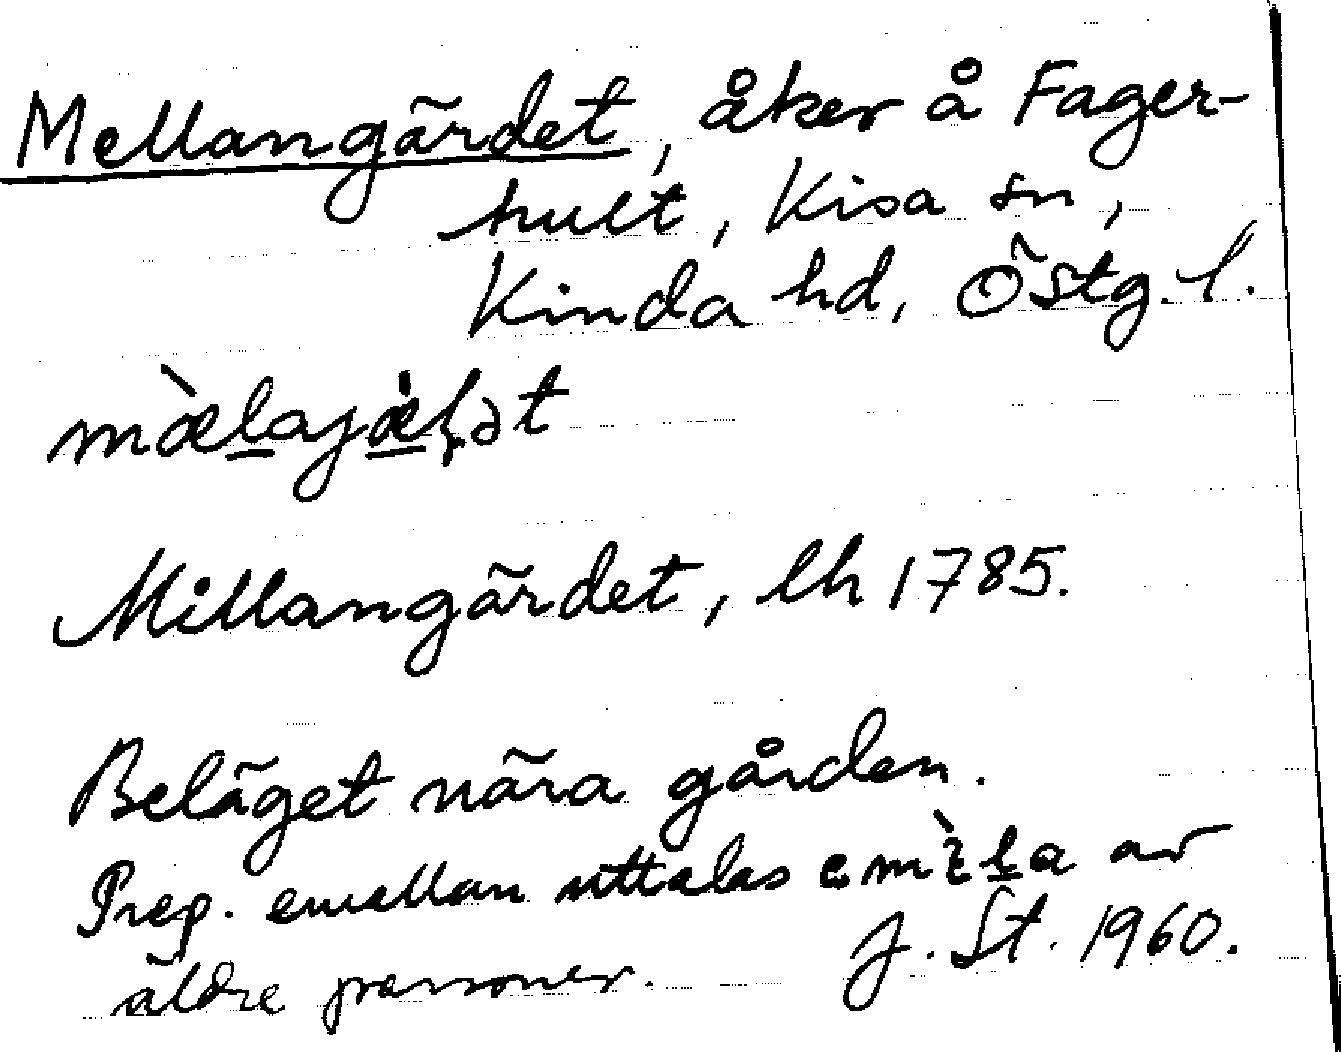 Mellangärdet, åker å Fager-
hult, Kisa sn,
Kinda hd, Östg. l.
Millangärdet, lh 1785.
Beläget nära gården.
Prep. emellan uttalas av
äldre personer. J. St. 1960.